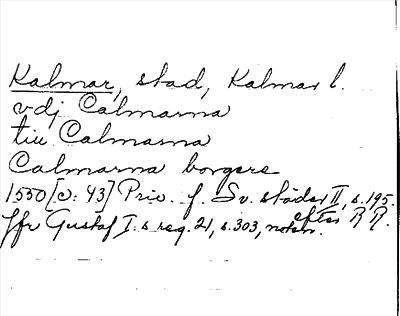 Kalmar, stad, Kalmar l.
vdj Calmarna
tiu Calmarna
Calmarna borgere
1550 [o: 43] Priv. f. Sv. städer II, s. 195.
efter RR.
Jfr Gustaf I:s reg. 21, s. 303, noten.